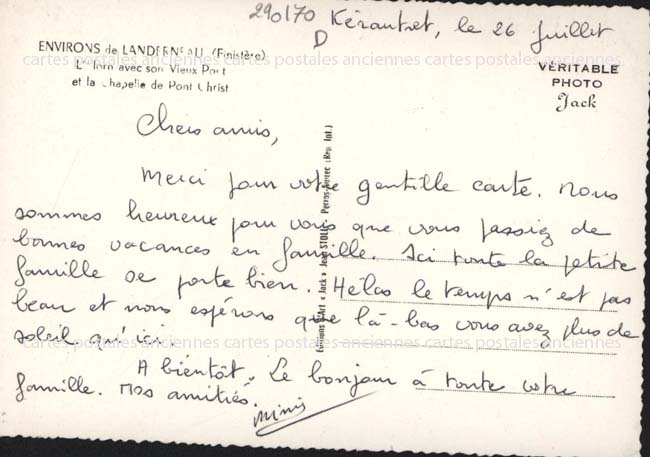 290170 Kérautret, le 26 Juillet
D
ENVIRONS de LANDERNEAU (Finistère)
L'Elorn avec son Vieux Pont
et la Chapelle de Pont Christ
VÉRITABLE
PHOTO
Jack
cartes postales anciennes cartes postales anciennes cartes postales anciennes
Chers amis,
Merci pour votre gentille carte. Nous
sommes heureux pour vous que vous passiez de
bonnes vacances en famille. Ici toute la petite
famille se porte bien. Hélas le temps n'est pas
beau et nous espérons que là-bas vous avez plus de
soleil qu'ici.
cartes postales anciennes cartes postales anciennes cartes postales anciennes
A bientôt. Le bonjour à toute votre
famille. Mes amitiés.
Mimi
Editions d'Art « Jack » Jean STOLL - Perros-Guirec (Rep. Int.)